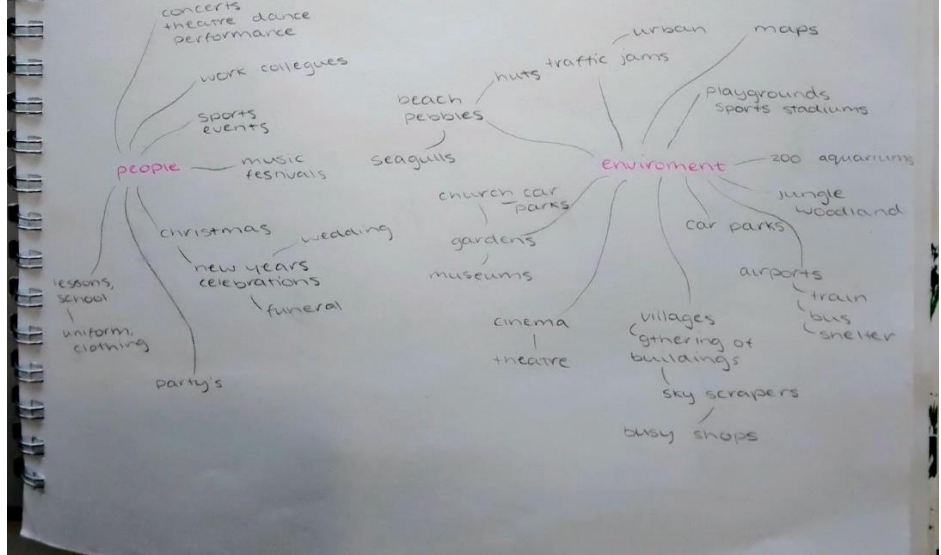 concerts
theatre dance
performance
work collegues
sports
events
people
music
festivals
christmas
wedding
new years
celebrations
funeral
lessons,
school
uniform,
clothing
party's
urban
traffic jams
maps
huts
beach
pebbles
seagulls
playgrounds
sports stadiums
enviroment
zoo aquariums
jungle
woodland
church car
parks
gardens
museums
car parks
airports
train
bus
shelter
cinema
theatre
villages
gthering of
buildings
sky scrapers
busy shops